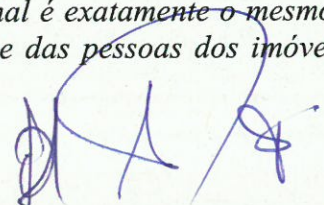 nal é exatamente o mesmo
e das pessoas dos imóve